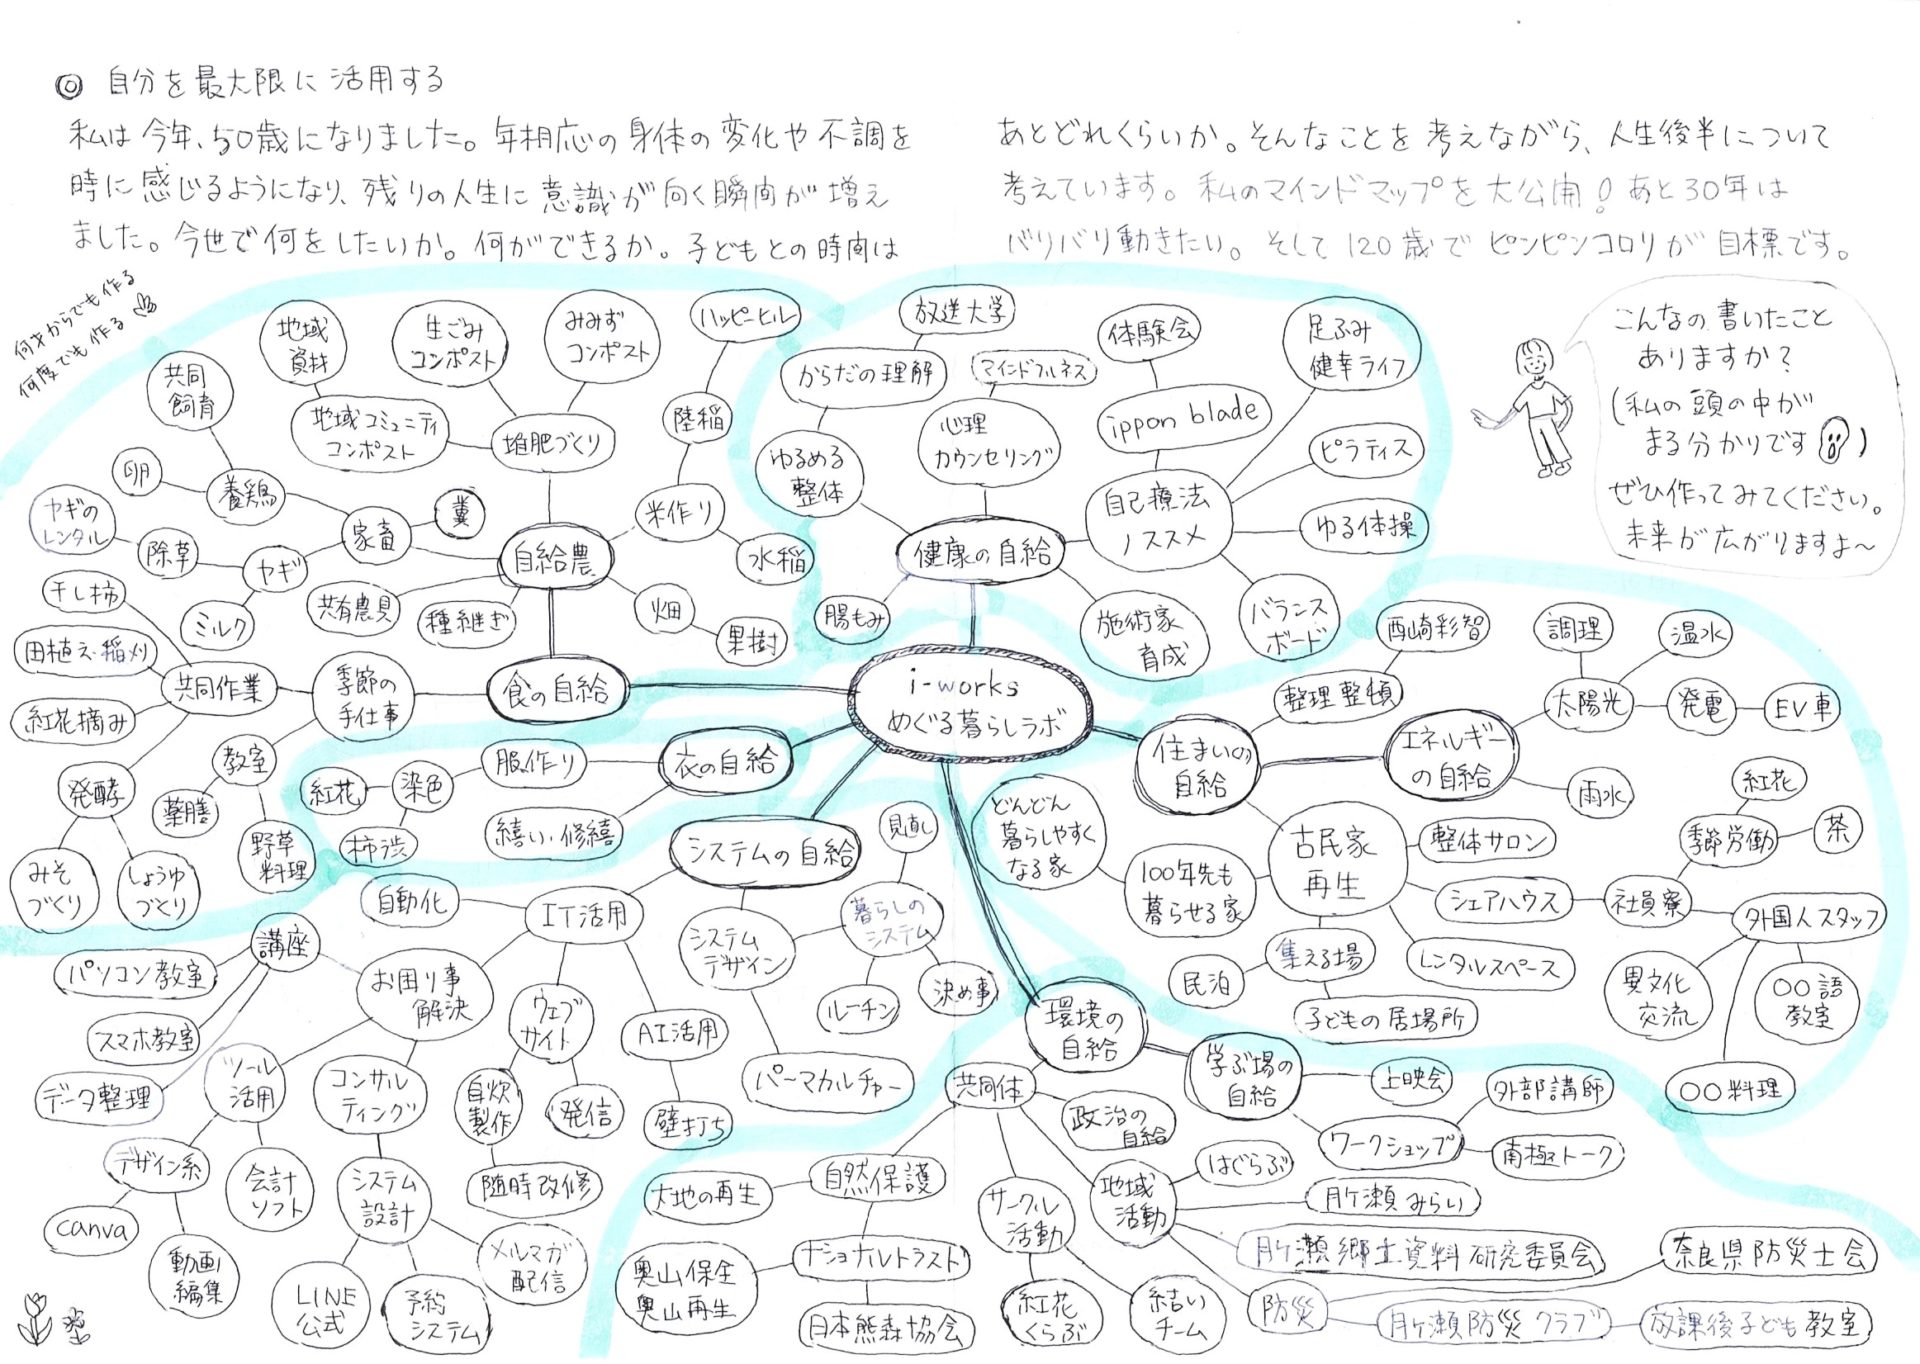 ◎ 自分を最大限に活用する
私は今年、50歳になりました。年相応の身体の変化や不調を
時に感じるようになり、残りの人生に意識が向く瞬間が増え
ました。今世で何をしたいか。何ができるか。子どもとの時間は
あとどれくらいか。そんなことを考えながら、人生後半について
考えています。私のマインドマップを大公開!あと30年は
バリバリ動きたい。そして120歳でピンピンコロリが目標です。
何才からでも作る
何度でも作る
こんなの書いたこと
ありますか?
(私の頭の中が
まる分かりです)
ぜひ作ってみてください。
未来が広がりますよ〜
i-works
めぐる暮らしラボ
食の自給
自給農
堆肥づくり
地域コミュニティ
コンポスト
地域
資材
生ごみ
コンポスト
みみず
コンポスト
米作り
陸稲
ハッピーヒル
水稲
畑
果樹
種継ぎ
共有農具
家畜
糞
養鶏
共同
飼育
卵
ヤギ
除草
ヤギの
レンタル
ミルク
季節の
手仕事
共同作業
干し柿
田植え・稲刈
紅花摘み
発酵
みそ
づくり
しょうゆ
づくり
教室
薬膳
野草
料理
衣の自給
服作り
染色
紅花
柿渋
繕い・修繕
健康の自給
ゆるめる
整体
からだの理解
放送大学
心理
カウンセリング
マインドフルネス
自己療法
ノススメ
ippon blade
体験会
足ふみ
健幸ライフ
ピラティス
ゆる体操
バランス
ボード
施術家
育成
腸もみ
住まいの
自給
整理整頓
西崎彩智
エネルギー
の自給
太陽光
調理
温水
発電
EV車
雨水
古民家
再生
100年先も
暮らせる家
どんどん
暮らしやすく
なる家
整体サロン
シェアハウス
社員寮
季節労働
紅花
茶
外国人スタッフ
異文化
交流
○○語
教室
○○料理
レンタルスペース
集える場
民泊
子どもの居場所
システムの自給
IT活用
自動化
お困り事
解決
講座
パソコン教室
スマホ教室
データ整理
ツール
活用
デザイン系
canva
動画
編集
会計
ソフト
コンサル
ティング
システム
設計
LINE
公式
予約
システム
メルマガ
配信
ウェブ
サイト
自炊
製作
随時改修
発信
AI活用
壁打ち
システム
デザイン
暮らしの
システム
見直し
決め事
ルーチン
パーマカルチャー
環境の
自給
学ぶ場の
自給
上映会
ワークショップ
外部講師
南極トーク
共同体
政治の
自給
自然保護
大地の再生
ナショナルトラスト
奥山保全
奥山再生
日本熊森協会
サークル
活動
紅花
くらぶ
結い
チーム
地域
活動
はぐらぶ
月ヶ瀬みらい
月ヶ瀬郷土資料研究委員会
防災
奈良県防災士会
月ヶ瀬防災クラブ
放課後子ども教室